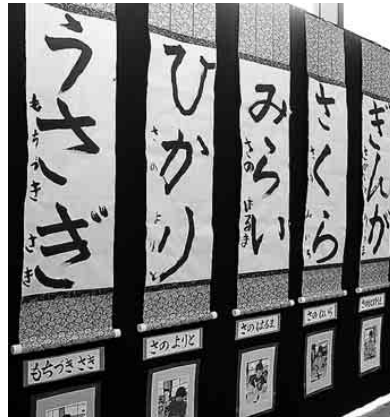 うさぎ
もちづき さき
ひかり
さの よりと
みらい
さの はるま
さくら
さの
ぎんが
もちづき さき
さの よりと
さの はるま
さの